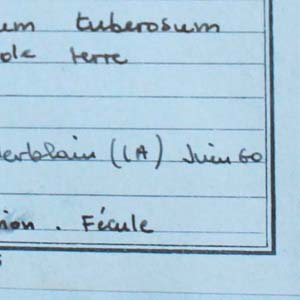 um tuberosum
de terre
herblain (LA) Juin 60
ion. Fécule